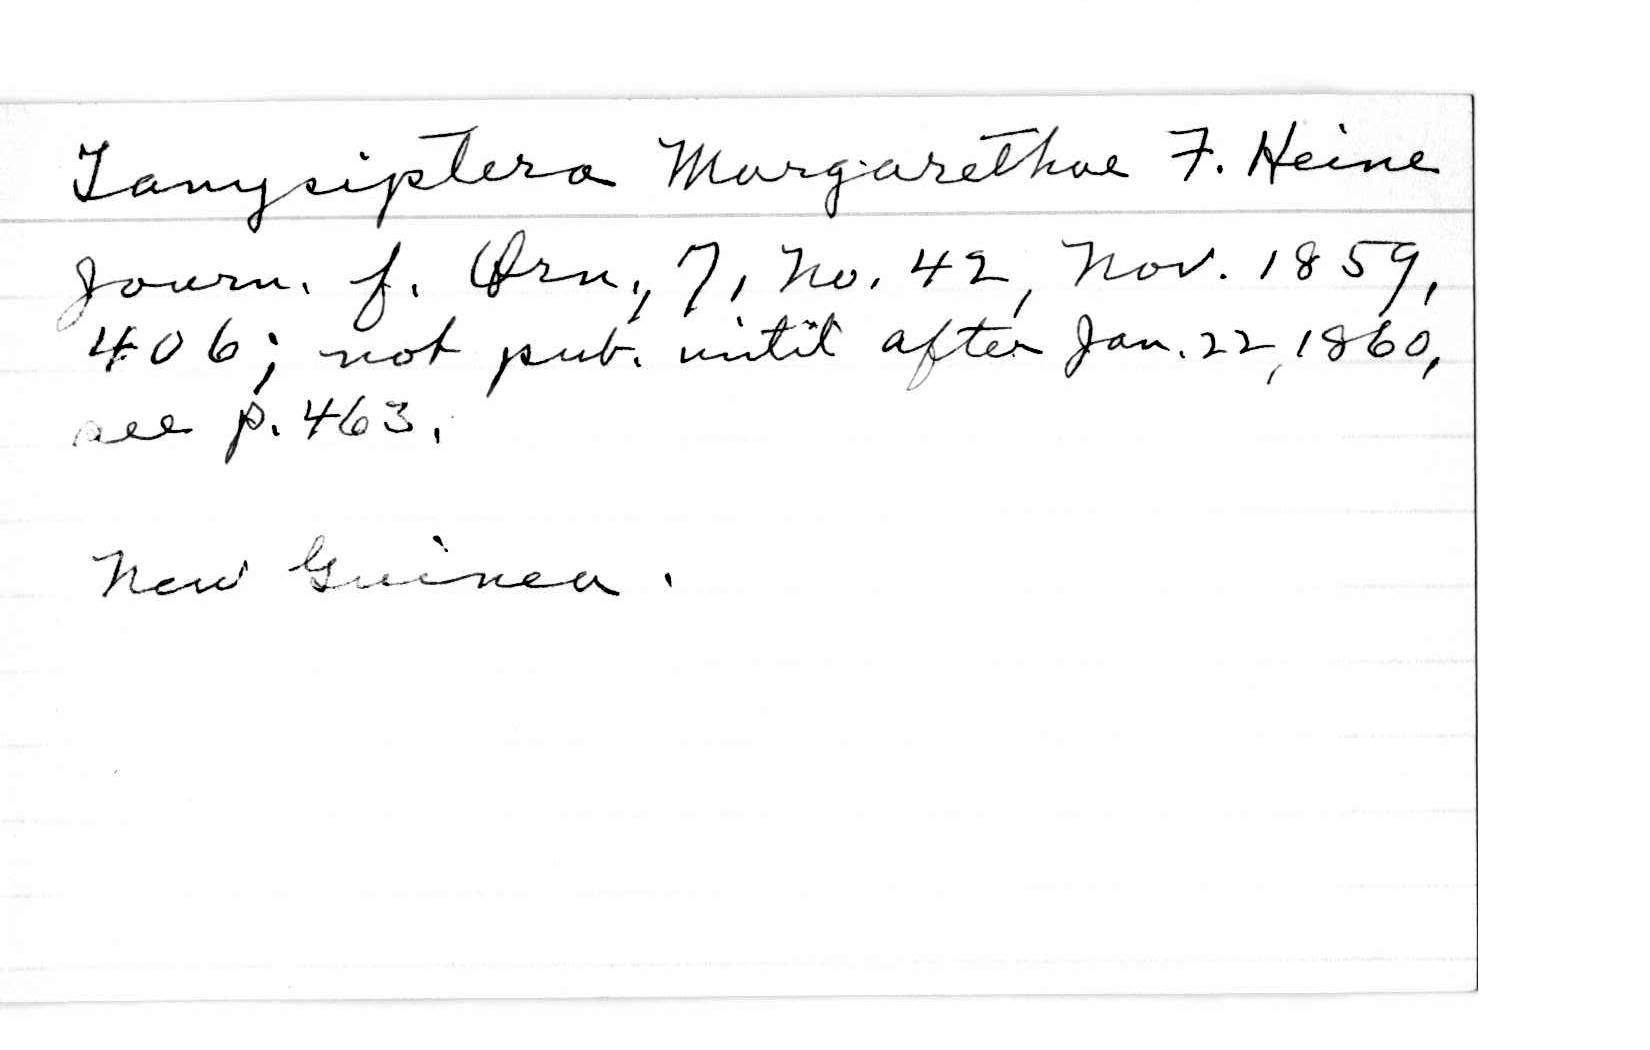 Tanysiptera Margarethae F. Heine
Journ. f. Orn., 7, No. 42, Nov. 1859,
406; not pub. until after Jan. 22, 1860,
see p. 463.
New Guinea.